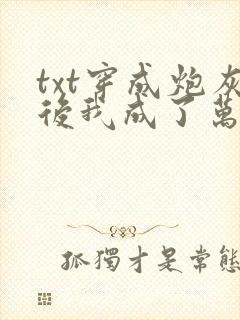 txt穿成炮灰
後我成了萬
孤獨才是常態